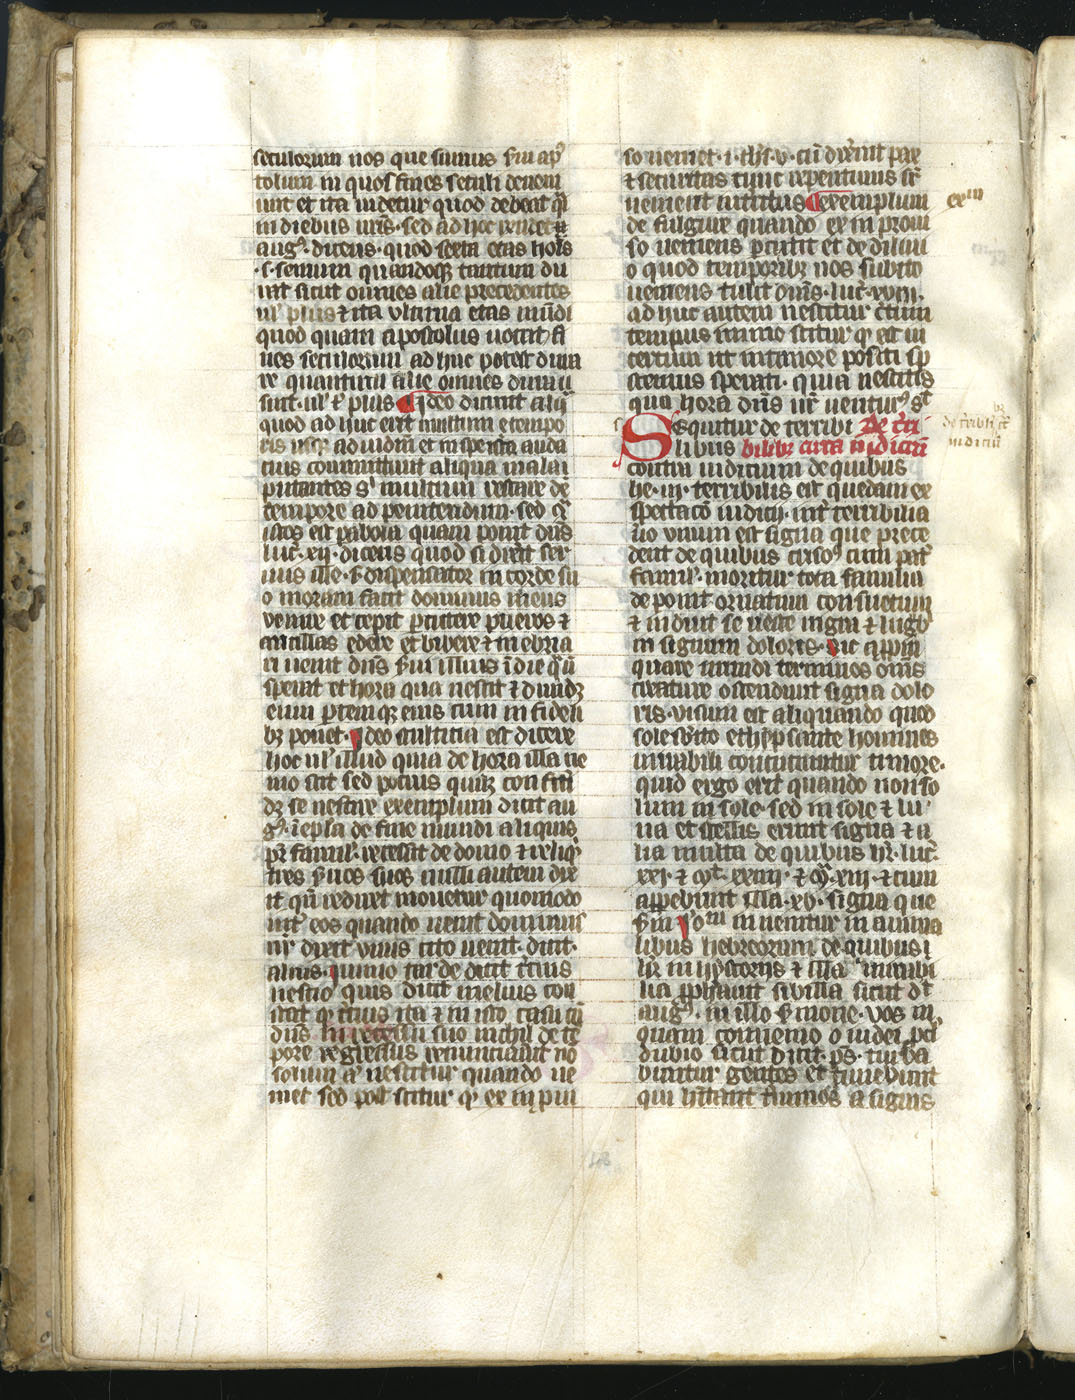 seculorum nos que sumus s'm ap'
tolum in quos fines seculi deuen
unt et ita uidetur quod debeat
in diebus n'ris. sed ad hoc
aug9. dicens. quod sexta etas hoīs
.s. senium quandoq; tantum du
rat sicut omnes alie precedentes
ul' plus ⁊ ita ultima etas mūdi
quod quam apostolus uocat fi
nes seculorum ad huc potest dura
re quantum alie omnes duraue
rint. ul' ⁊ plus ¶ Ideo dicunt aliq'
quod ad huc erit multum e tempo
ris usq; ad iudiciū et in spe ista auda
cius committunt aliqua mala
putantes s' multum restare de
tempore ad penitendum. sed
istos est parabola quam ponit dn̄s
luc. xij. dicens quod si dixerit ser
uus ille .s. dispensator in corde su
o moram facit dominus meus
uenire et cepit p̄cutere pueros ⁊
ancillas edere et bibere ⁊ inebria
ri ueniet dn̄s serui illius ī die qua nō
sperat et hora qua nescit ⁊ diuidz
eum partemq; eius cum infideli
bz ponet. Ideo stulticia est dicere
hoc ul' illud quia de hora illa ne
mo scit sed potius quilz confite
dz se nescire exemplum dicit au
g9. ī epl'a de fine mundi aliquis
pr famil'. recessit de domo ⁊ reliq'
tres s'uos suos nulli autem dix
it qn̄ rediret mouetur quomodo
int' eos quando ueniet dominus
nr' dixit unus cito ueniet. dicit.
alius. immo tarde dicit t'cius
nescio quis dicit melius con
stat q' t'cius ita ⁊ in isto casu cū
dn̄s in recessu suo nichil de te
pore regressus renunciauit nō
solum a' nescitur quando ue
niet sed post scitur q' ex inpui
so ueniet. i. thes. v. cū dixerint pax
⁊ securitas tunc repentinus s'
uenient interitus ¶ exemplum
de fulgure quando ex inproui
so ueniens percutit et de diluui
o quod temporibz noe subito
ueniens tulit om̄s. luc. xvij.
ad huc autem nescitur c'tum
tempus immo scitur q' est in
certum ut in timore positi sp̄
stemus sperati. quia nescitis
qua hora dn̄s ur' uenturus st
Sequitur de terribi De t'ri
libus bilibz circa iudiciū
contra iudicium de quibus
he. iij. terribilis est quedam ex
spectacō iudicij. int' terribilia
u'o unum est signa que prece
dent de quibus crisos' cum pat'
famil'. moritur tota familia
deponit ornatum consuetum
⁊ induit se ueste nigra ⁊ lugub'
in signum doloris. sic appīn
quare mundi terminos om̄s
creature ostendunt signa dolo
ris. uisum est aliquando quod
sole s'bito eclypsante homines
mirabili concutiuntur timore.
quid ergo erit quando non so
lum in sole. sed in sole ⁊ lu
na et stellis erunt signa ⁊ a
lia multa de quibus hr'. luc.
xxj. ⁊ mt. xxiiij. ⁊ m'. xiij. ⁊ cum
apparebunt illa. xv. signa que
s'm Iero'm inueniuntur in anna
libus hebreorum de quibus i
hr' in hystorijs ⁊ illa mirabi
lia p̄phauit sibilla sicut d't
aug9. in illo s'mone. uos in
quam conuenio o iudei. pcl'
dubio sicut dicit. ps. turba
buntur gentes et timebunt
qui hītant t'minos a signis
exm
de t'ribilibz c'
iudiciū
48